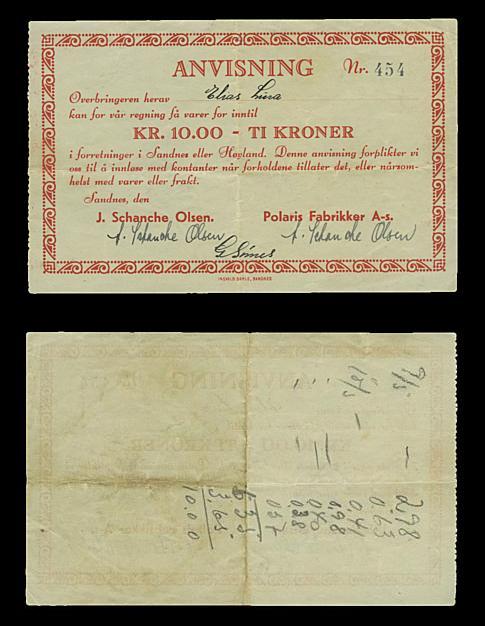 ANVISNING Nr. 454
Overbringeren herav Elias Lura
kan for vår regning få varer for inntil
KR. 10.00 - TI KRONER
i forretninger i Sandnes eller Høyland. Denne anvisning forplikter vi
oss til å innløse med kontanter når forholdene tillater det, eller nårsom-
helst med varer eller frakt.
Sandnes, den
J. Schanche Olsen. Polaris Fabrikker A-s.
A. Schanche Olsen A. Schanche Olsen
G Simes
INGVALD DAHLE, SANDNES
9/5
12/5
2.98
0.63
0.41
0.98
0.38
0.37
6.35
3.65
10.00